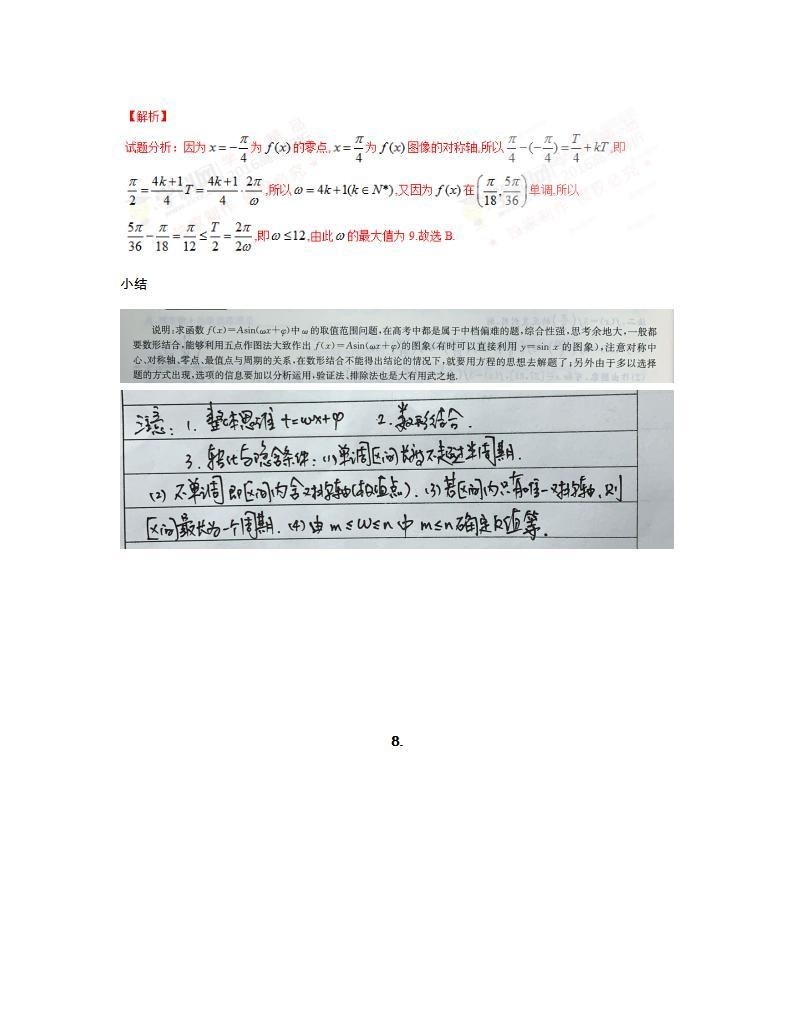 【解析】
试题分析：因为 x = -π/4 为 f(x) 的零点, x = π/4 为 f(x) 图像的对称轴,所以 π/4 - (-π/4) = T/4 + kT ,即
π/2 = (4k+1)/4 T = (4k+1)/4 · 2π/ω ,所以 ω = 4k+1(k ∈ N*) ,又因为 f(x) 在 (π/18, 5π/36) 单调,所以
5π/36 - π/18 = π/12 ≤ T/2 = 2π/2ω ,即 ω ≤ 12 ,由此 ω 的最大值为 9.故选 B.
小结
说明:求函数 f(x)=Asin(ωx+φ)中 ω 的取值范围问题,在高考中都是属于中档偏难的题,综合性强,思考余地大,一般都
要数形结合,能够利用五点作图法大致作出 f(x)=Asin(ωx+φ)的图象(有时可以直接利用 y=sin x 的图象),注意对称中
心、对称轴、零点、最值点与周期的关系,在数形结合不能得出结论的情况下,就要用方程的思想去解题了;另外由于多以选择
题的方式出现,选项的信息要加以分析运用,验证法、排除法也是大有用武之地.
注意: 1. 整体思维 t=ωx+φ 2. 数形结合.
3. 转化与隐含条件: (1)单调区间长为不超过半周期.
(2) 不单调即区间内含对称轴(极值点). (3) 若区间内只有唯一对称轴, 则
区间最长为一个周期. (4) 由 m≤ω≤n 中 m≤n 确定k值等.
8.